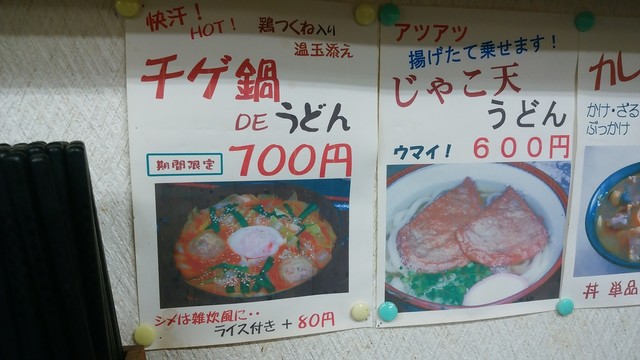 快汗！
HOT！
鶏つくね入り
温玉添え
チゲ鍋
DE うどん
期間限定 700円
シメは雑炊風に・・
ライス付き + 80円
アツアツ
揚げたて乗せます！
じゃこ天
うどん
ウマイ！ 600円
カレ
かけ・ざる
ぶっかけ
丼 単品